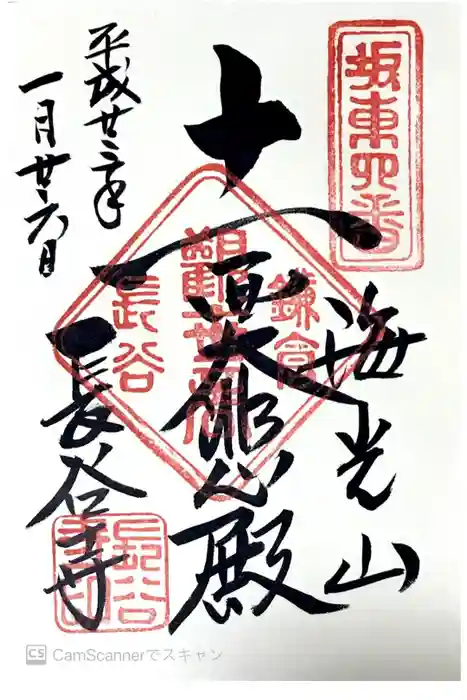 坂東四番
海光山
十一面大悲殿
鎌倉
觀世音
長谷
平成廿三年
一月廿六日
長谷寺
長谷寺印
CS CamScannerでスキャン